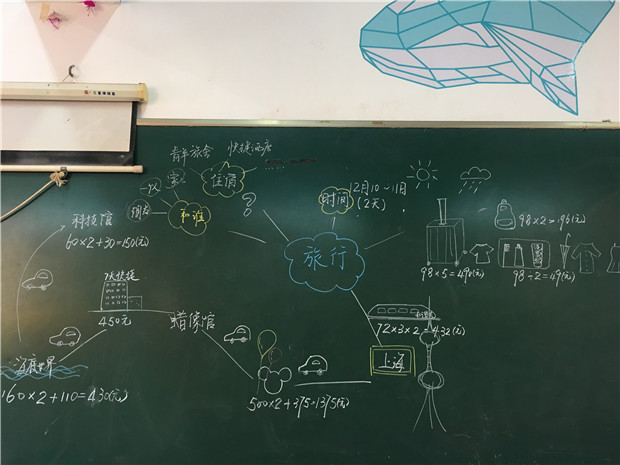 青年旅舍
快捷酒店
一家
住宿
和谁
朋友
?
时间
12月10~11日
(2天)
旅行
98×2=196(元)
98×5=490(元)
98÷2=49(元)
科技馆
60×2+30=150(元)
7天快捷
450元
蜡像馆
72×3×2=432(元)
上海
海底世界
160×2+110=430(元)
500×2+375=1375(元)